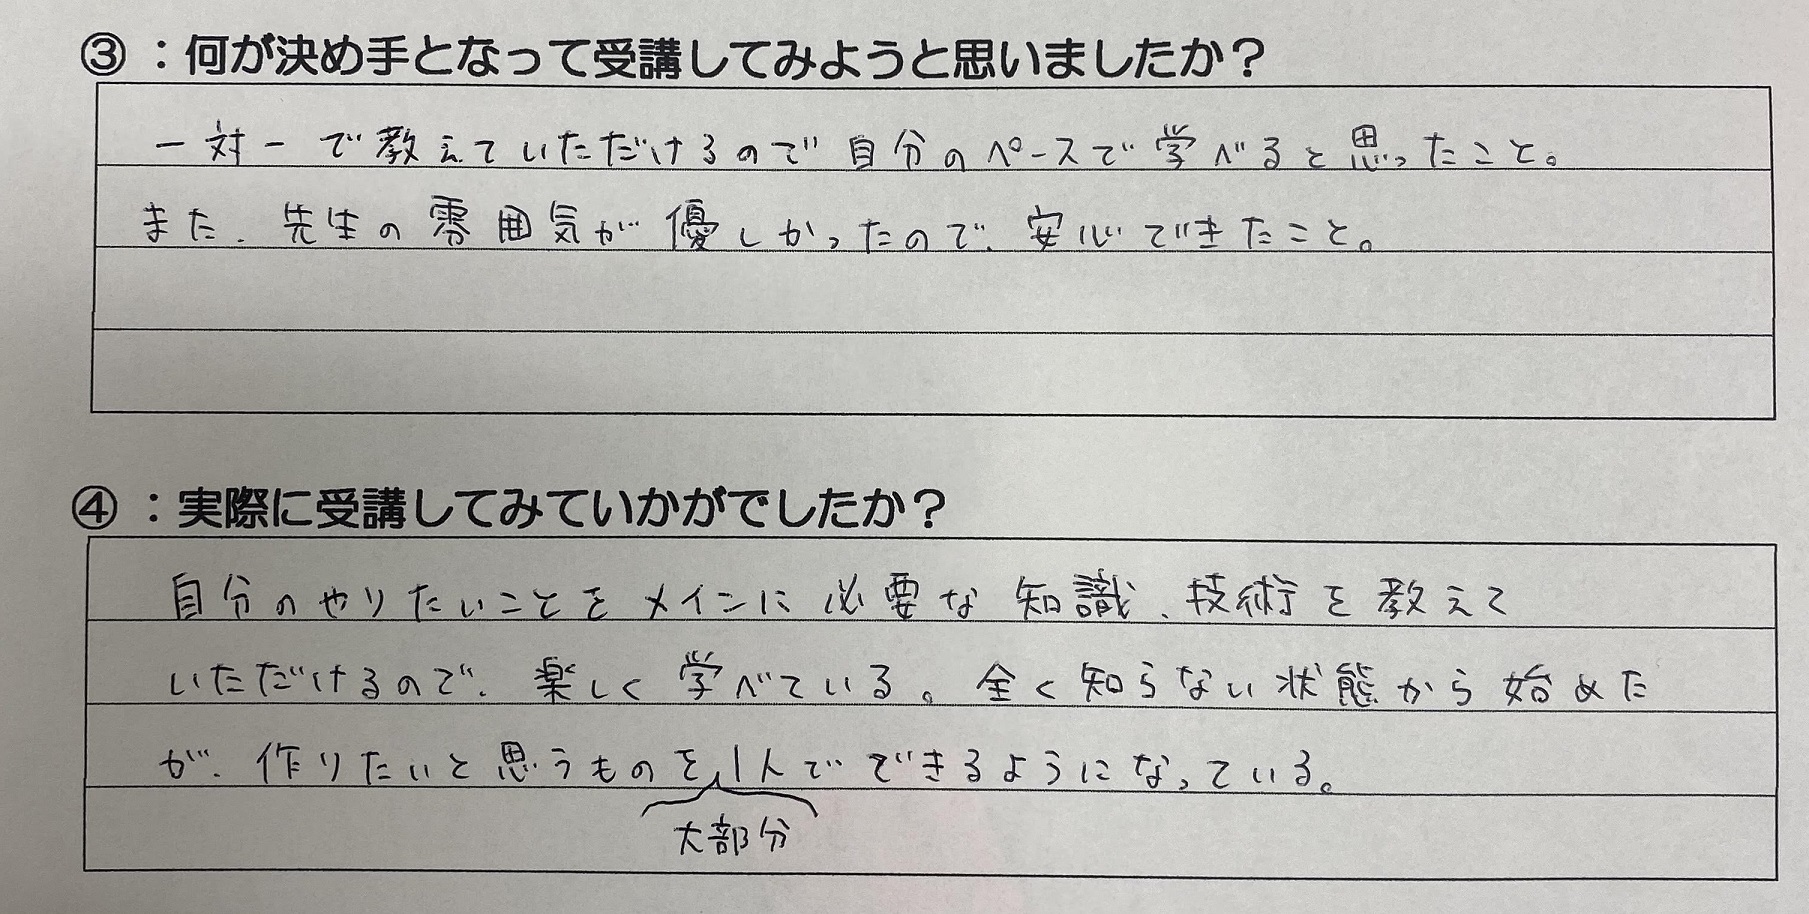 ③：何が決め手となって受講してみようと思いましたか？
一対一で教えていただけるので自分のペースで学べると思ったこと。
また、先生の雰囲気が優しかったので、安心できたこと。
④：実際に受講してみていかがでしたか？
自分のやりたいことをメインに必要な知識、技術を教えて
いただけるので、楽しく学べている。全く知らない状態から始めた
が、作りたいと思うものを1人でできるようになっている。
大部分